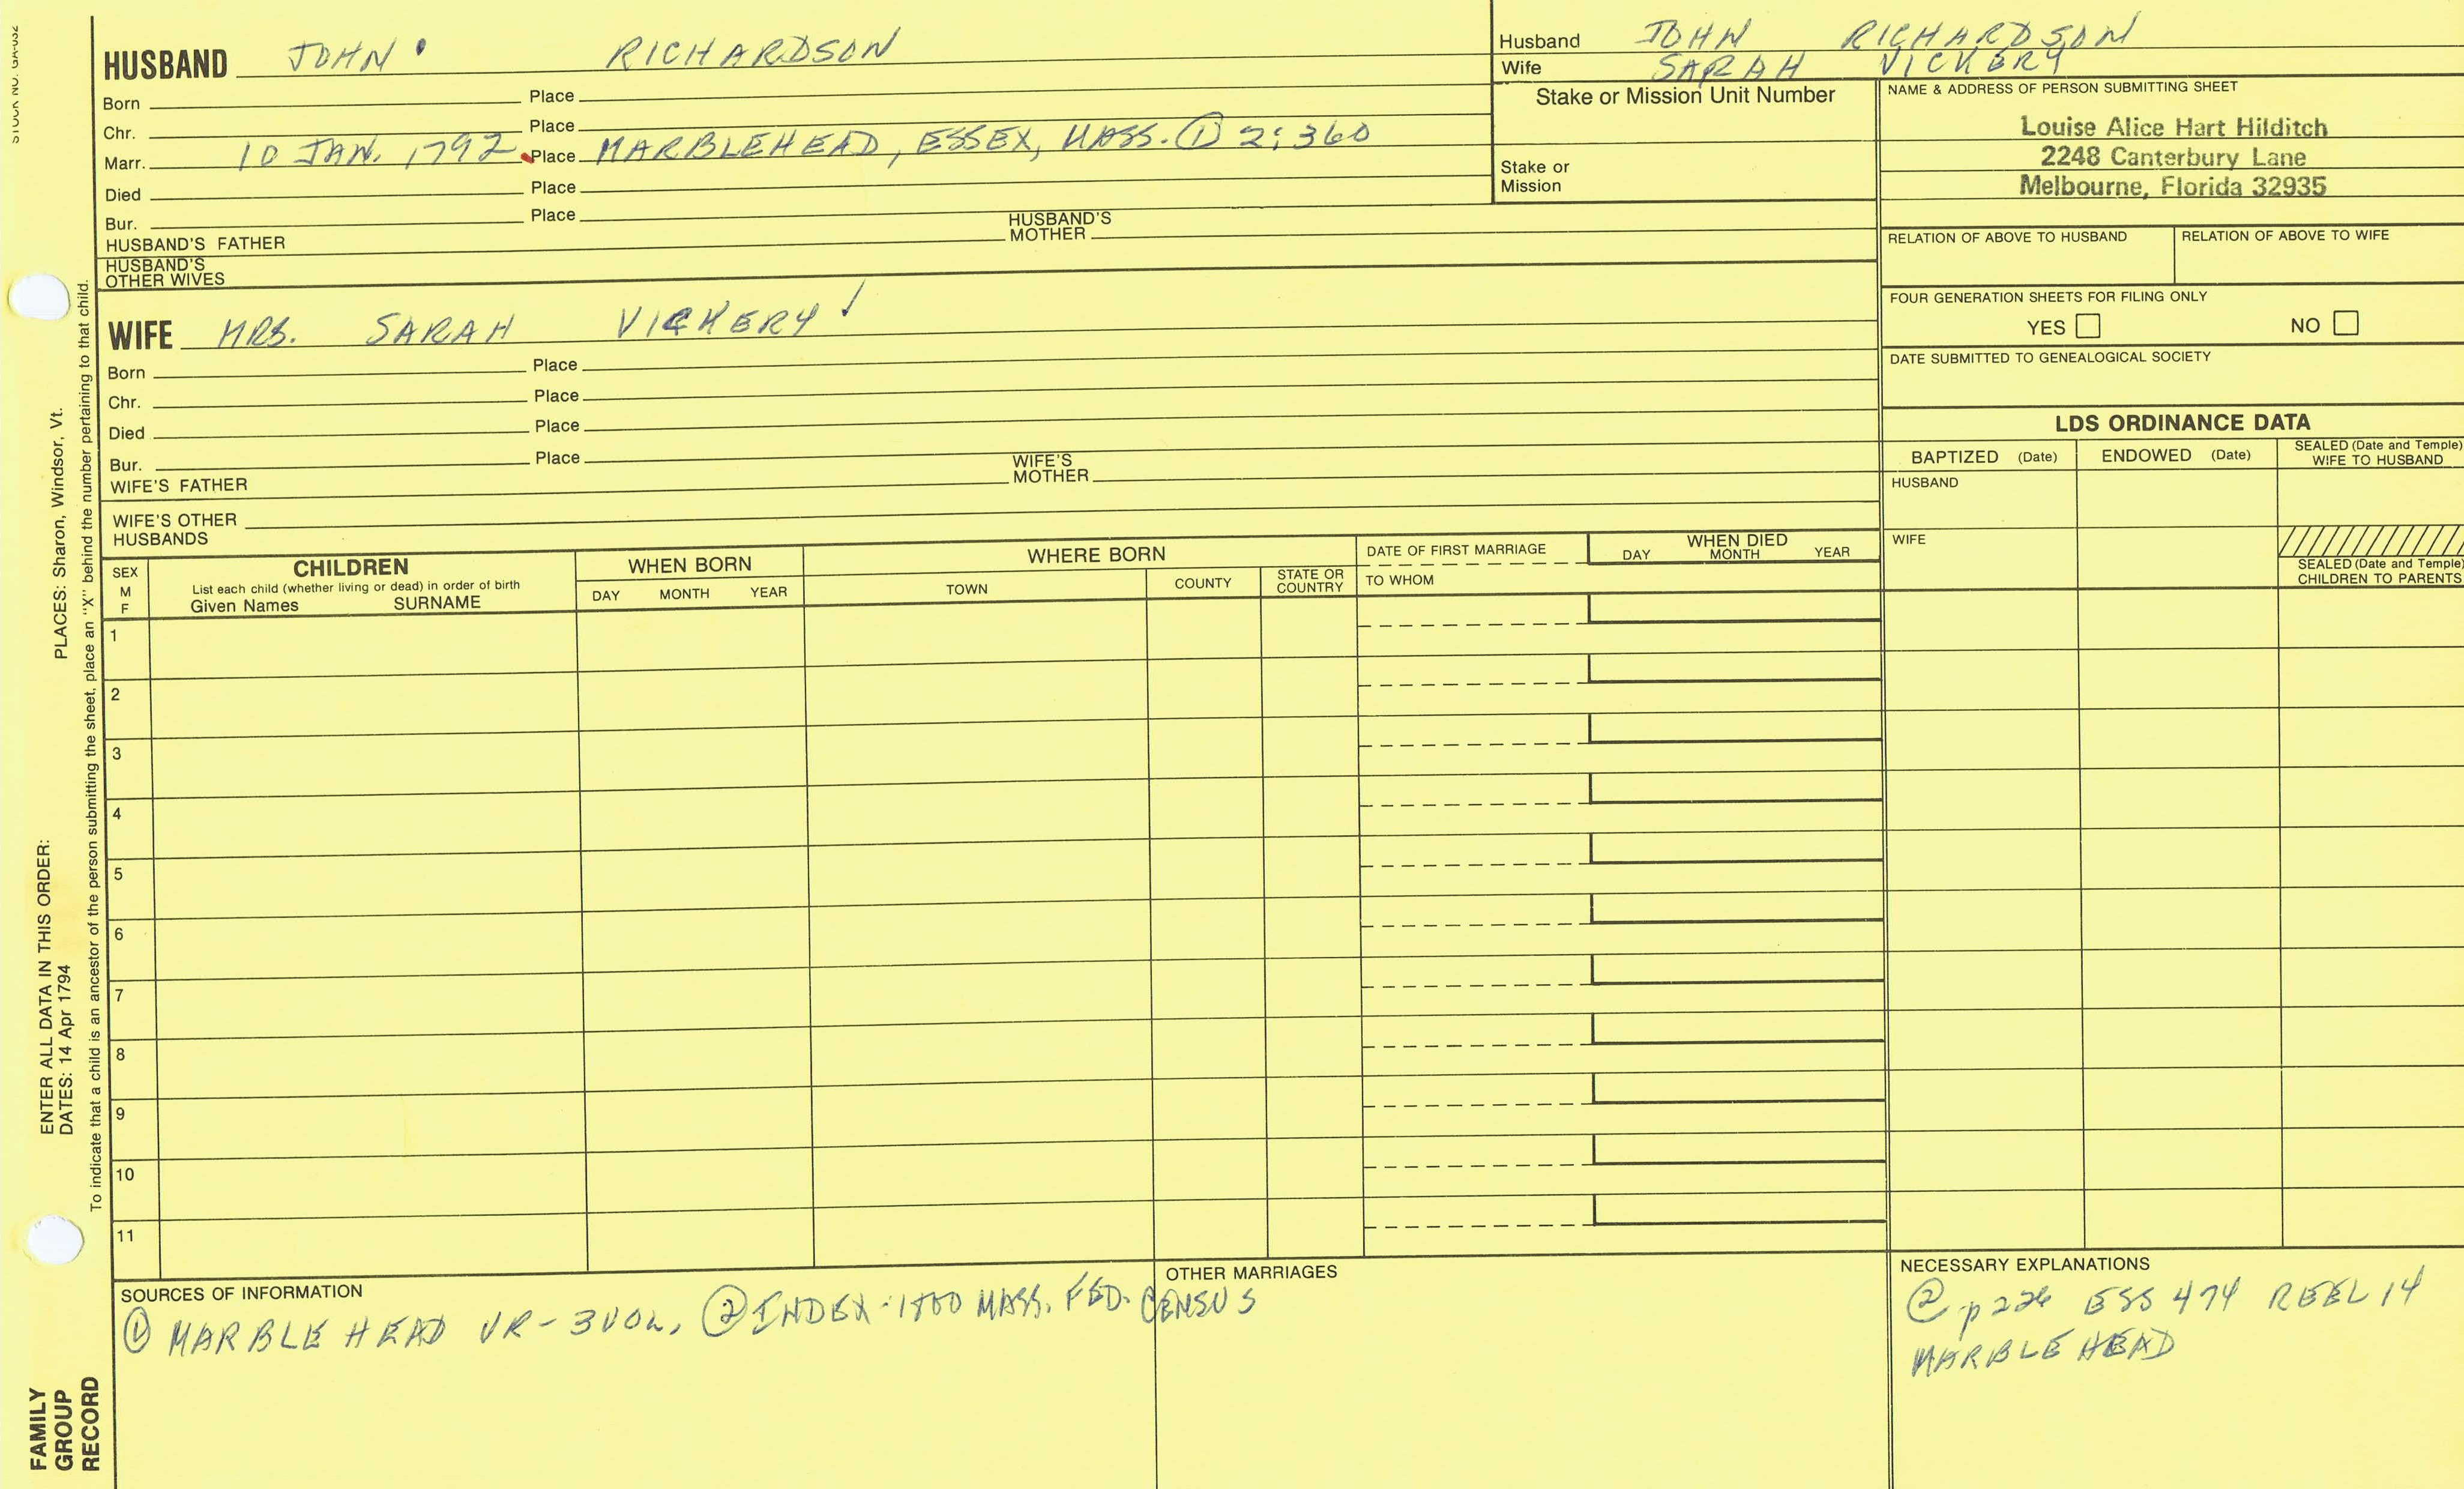 HUSBAND JOHN RICHARDSON
Born Place
Chr. Place
Marr. 10 JAN. 1792 Place MARBLEHEAD, ESSEX, MASS. ① 2:360
Died Place
Bur. Place
HUSBAND'S FATHER HUSBAND'S MOTHER
HUSBAND'S OTHER WIVES
WIFE MRS. SARAH VICKERY
Born Place
Chr. Place
Died Place
Bur. Place
WIFE'S FATHER WIFE'S MOTHER
WIFE'S OTHER HUSBANDS
Husband JOHN RICHARDSON
Wife SARAH VICKERY
Stake or Mission Unit Number
Stake or Mission
NAME & ADDRESS OF PERSON SUBMITTING SHEET
Louise Alice Hart Hilditch
2248 Canterbury Lane
Melbourne, Florida 32935
RELATION OF ABOVE TO HUSBAND RELATION OF ABOVE TO WIFE
FOUR GENERATION SHEETS FOR FILING ONLY
YES NO
DATE SUBMITTED TO GENEALOGICAL SOCIETY
LDS ORDINANCE DATA
BAPTIZED (Date) ENDOWED (Date) SEALED (Date and Temple) WIFE TO HUSBAND
HUSBAND
WIFE
SEALED (Date and Temple) CHILDREN TO PARENTS
SEX M F
CHILDREN
List each child (whether living or dead) in order of birth
Given Names SURNAME
WHEN BORN
DAY MONTH YEAR
WHERE BORN
TOWN COUNTY STATE OR COUNTRY
DATE OF FIRST MARRIAGE
TO WHOM
WHEN DIED
DAY MONTH YEAR
1
2
3
4
5
6
7
8
9
10
11
SOURCES OF INFORMATION
① MARBLEHEAD VR-3VOL, ② INDEX-1800 MASS. FED. CENSUS
OTHER MARRIAGES
NECESSARY EXPLANATIONS
② p226 ESS 474 REEL 14
MARBLEHEAD
PLACES: Sharon, Windsor, Vt.
ENTER ALL DATA IN THIS ORDER:
DATES: 14 Apr 1794
To indicate that a child is an ancestor of the person submitting the sheet, place an "X" behind the number pertaining to that child.
FAMILY
GROUP
RECORD